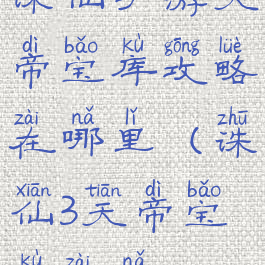 诛仙3游天
dì bǎo kù gōng lüè
帝宝库攻略
zài nǎ lǐ zhū
在哪里(诛
xiān tiān dì bǎo
仙3天帝宝
kù zài nǎ